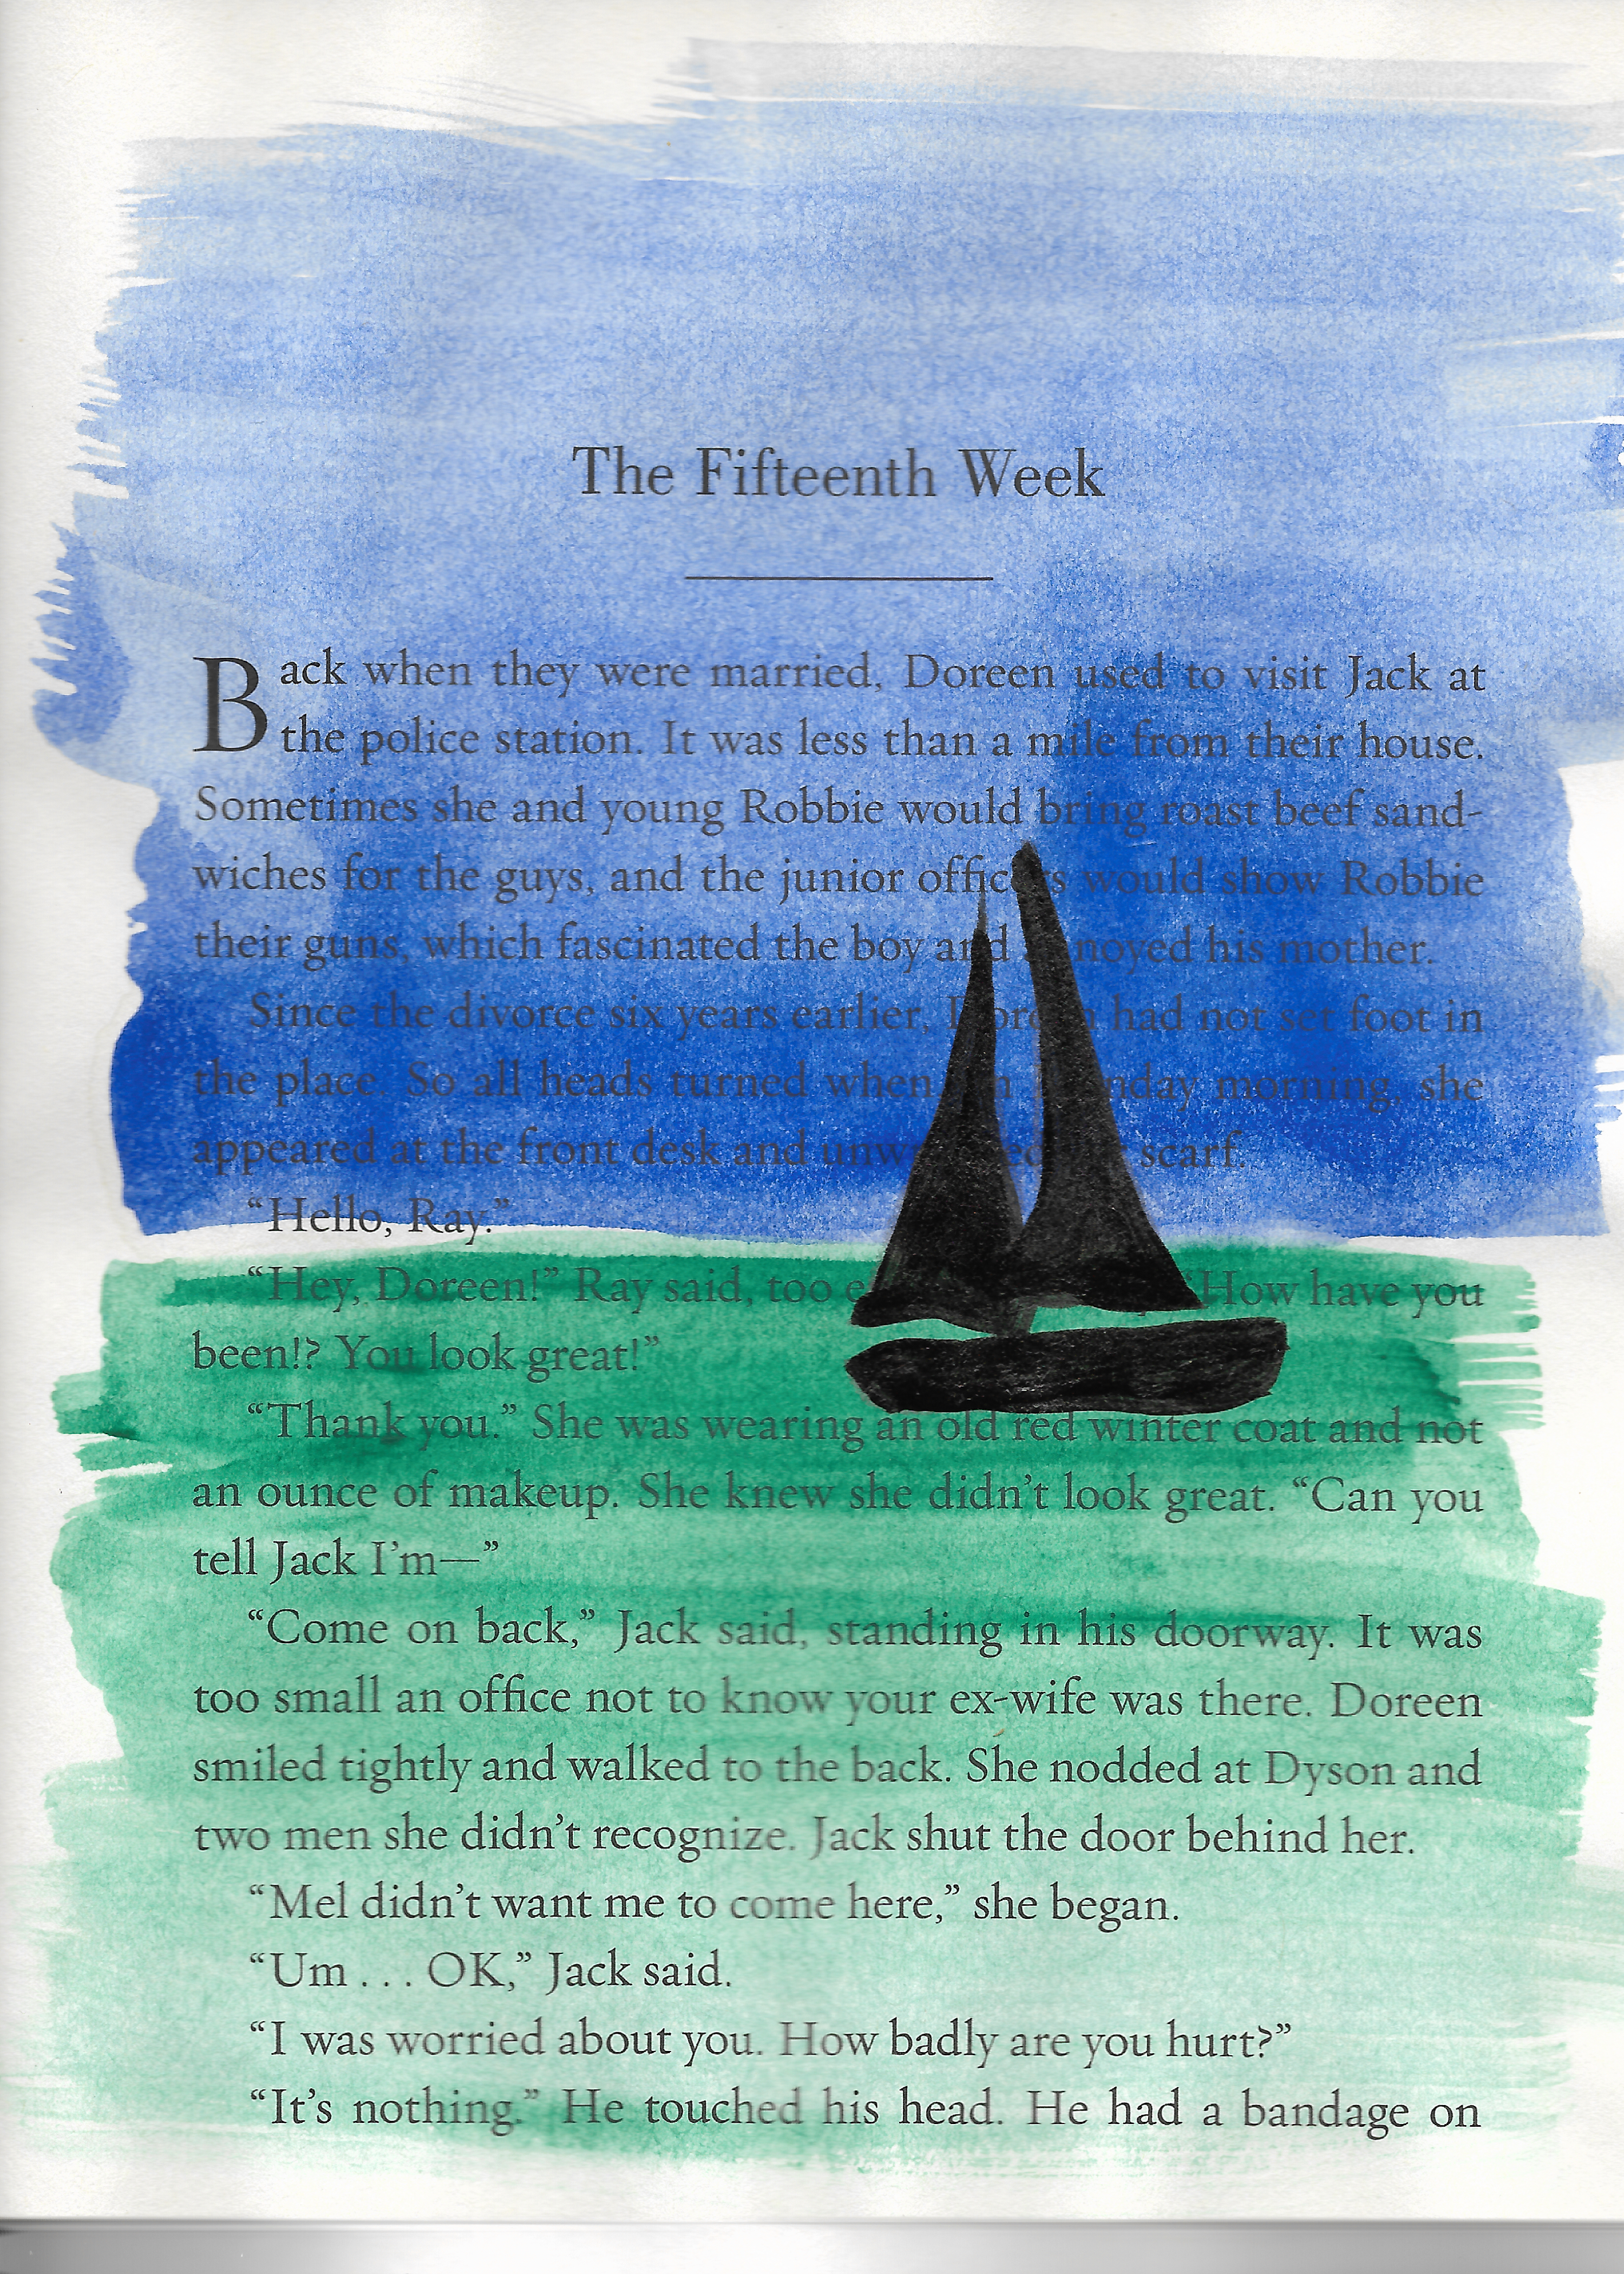 The Fifteenth Week
Back when they were married, Doreen used to visit Jack at
the police station. It was less than a mile from their house.
Sometimes she and young Robbie would bring roast beef sand-
wiches for the guys, and the junior officers would show Robbie
their guns, which fascinated the boy and annoyed his mother.
Since the divorce six years earlier, Doreen had not set foot in
the place. So all heads turned when, morning, she
appeared at the front desk and scarf.
“Hello, Ray.”
“Hey, Doreen!” Ray said, too “How have you
been!? You look great!”
“Thank you.” She was wearing an old red winter coat and not
an ounce of makeup. She knew she didn’t look great. “Can you
tell Jack I’m—”
“Come on back,” Jack said, standing in his doorway. It was
too small an office not to know your ex-wife was there. Doreen
smiled tightly and walked to the back. She nodded at Dyson and
two men she didn’t recognize. Jack shut the door behind her.
“Mel didn’t want me to come here,” she began.
“Um . . . OK,” Jack said.
“I was worried about you. How badly are you hurt?”
“It’s nothing.” He touched his head. He had a bandage on